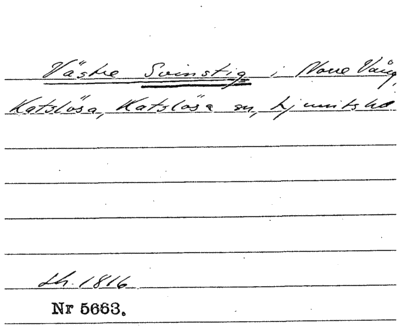 Västre Svinstig i Norre Vång,
Katslösa, Katslösa sn, Ljunits hd
Lh. 1816
Nr 5663.